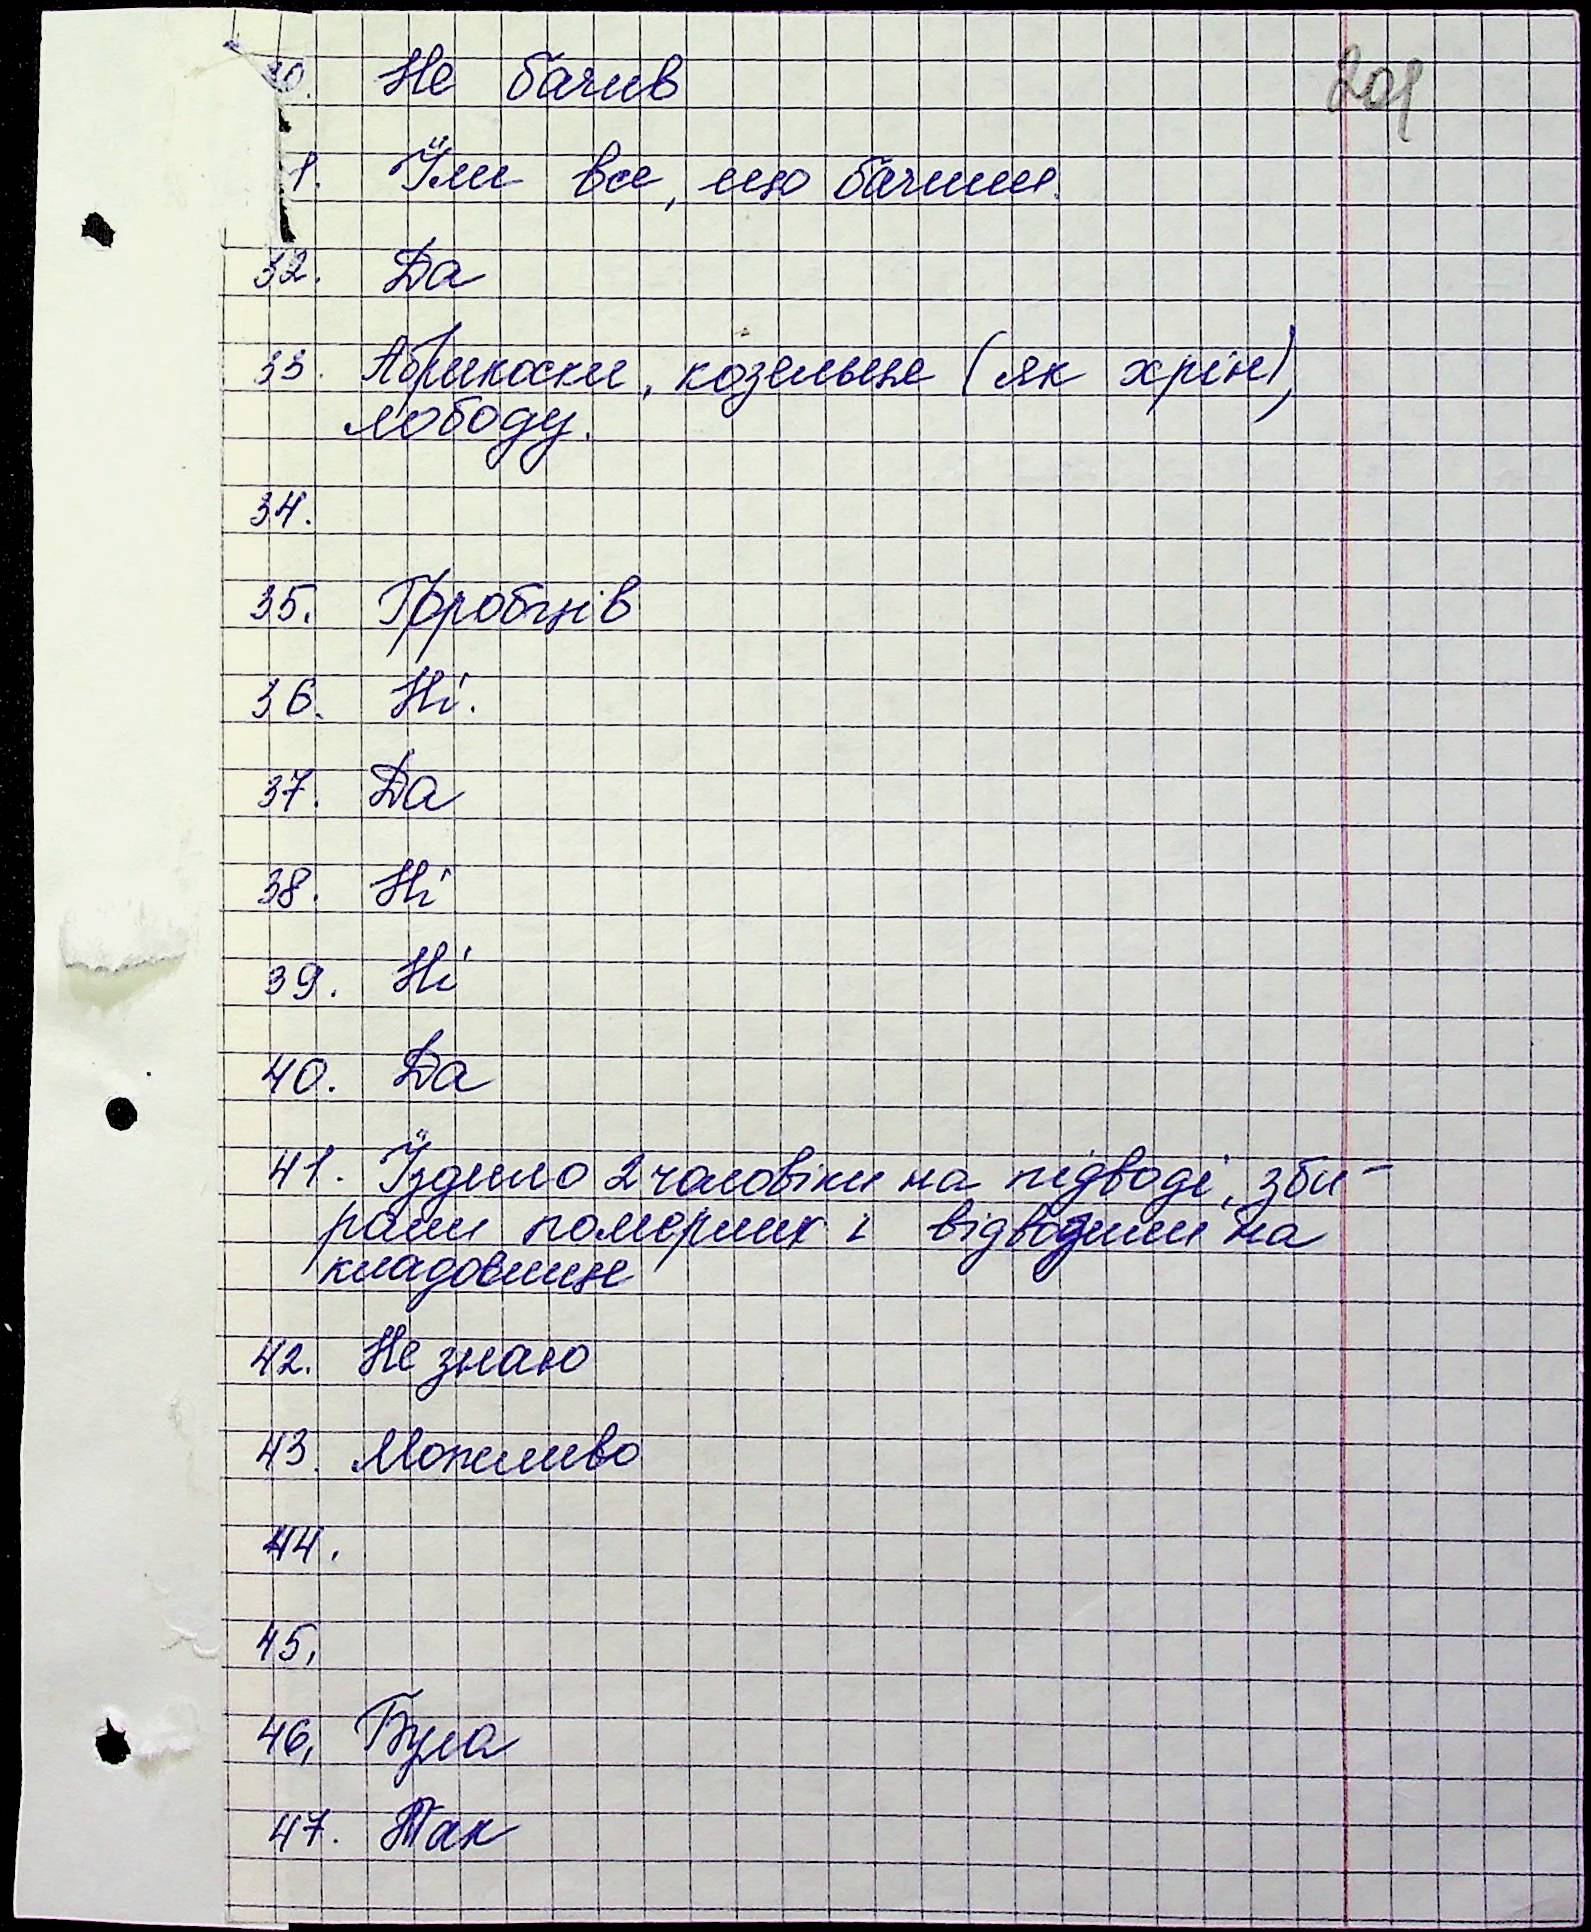 201
30. Не бачив
31. Їли все, що бачили.
32. Да
33. Абрикоски, козельце (як хрін),
лободу.
34.
35. Горобців
36. Ні.
37. Да
38. Ні
39. Ні
40. Да
41. Їздило 2 чоловіки на підводі, зби-
рали померлих і відводили на
кладовище
42. Не знаю
43. Можливо
44.
45.
46. Була
47. Так